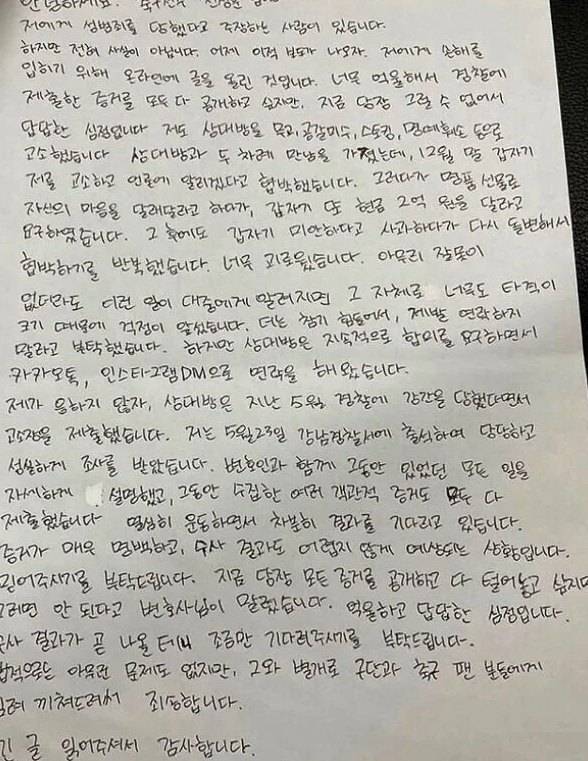 안녕하세요. 축구선수
저에게 성범죄를 당했다고 주장하는 사람이 있습니다.
하지만 전혀 사실이 아닙니다. 어제 이적 보도가 나오자. 저에게 손해를
입히기 위해 온라인에 글을 올린 것입니다. 너무 억울해서 경찰에
제출한 증거를 모두 다 공개하고 싶지만, 지금 당장 그럴 수 없어서
답답한 심정입니다 저도 상대방을 무고,공갈미수,스토킹,명예훼손 등으로
고소했습니다 상대방과 두 차례 만남을 가졌는데, 12월 말 갑자기
저를 고소하고 언론에 알리겠다고 협박했습니다. 그러다가 명품 선물로
자신의 마음을 달래달라고 하다가, 갑자기 또 현금 2억 원을 달라고
요구하였습니다. 그 후에도 갑자기 미안하다고 사과하다가 다시 돌변해서
협박하기를 반복했습니다. 너무 괴로웠습니다. 아무리 잘못이
없더라도 이런 일이 대중에게 알려지면 그 자체로 너무도 타격이
크기 때문에 걱정이 앞섰습니다. 더는 참기 힘들어서, 제발 연락하지
말라고 부탁했습니다. 하지만 상대방은 지속적으로 합의를 요구하면서
카카오톡, 인스타그램DM으로 연락을 해 왔습니다.
제가 응하지 않자, 상대방은 지난 5월 경찰에 강간을 당했다면서
고소장을 제출했습니다. 저는 5월23일 강남경찰서에 출석하여 당당하고
성실하게 조사를 받았습니다. 변호인과 함께 그동안 있었던 모든 일을
자세하게 설명했고, 그동안 수집한 여러 객관적 증거도 모두 다
제출했습니다 열심히 운동하면서 차분히 결과를 기다리고 있습니다.
증거가 매우 명백하고, 수사 결과도 어렵지 않게 예상되는 상황입니다.
믿어주시기를 부탁드립니다. 지금 당장 모든 증거를 공개하고 다 털어놓고 싶지만
그러면 안 된다고 변호사님이 말렸습니다. 억울하고 답답한 심정입니다.
수사 결과가 곧 나올 테니 조금만 기다려주시기를 부탁드립니다.
법적으로는 아무런 문제도 없지만, 그와 별개로 구단과 축구 팬 분들에게
심려 끼쳐드려서 죄송합니다.
긴 글 읽어주셔서 감사합니다.